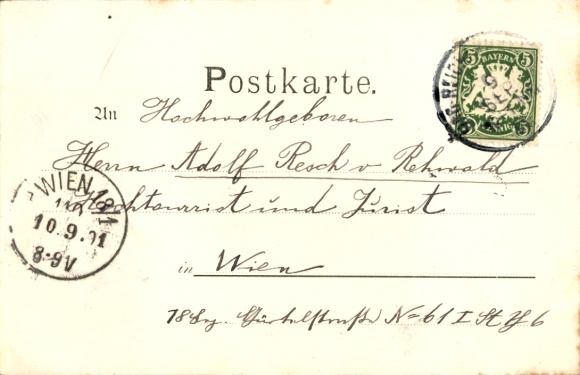 5 BAYERN 5
Postkarte.
An Hochwohlgeboren
Herrn Adolf Resch v Rehwald
WIEN 18/1
Hochtourist und Jurist
10.9.01
8-9V
in Wien
18 Bez. Gürtelstraße No 61 I St